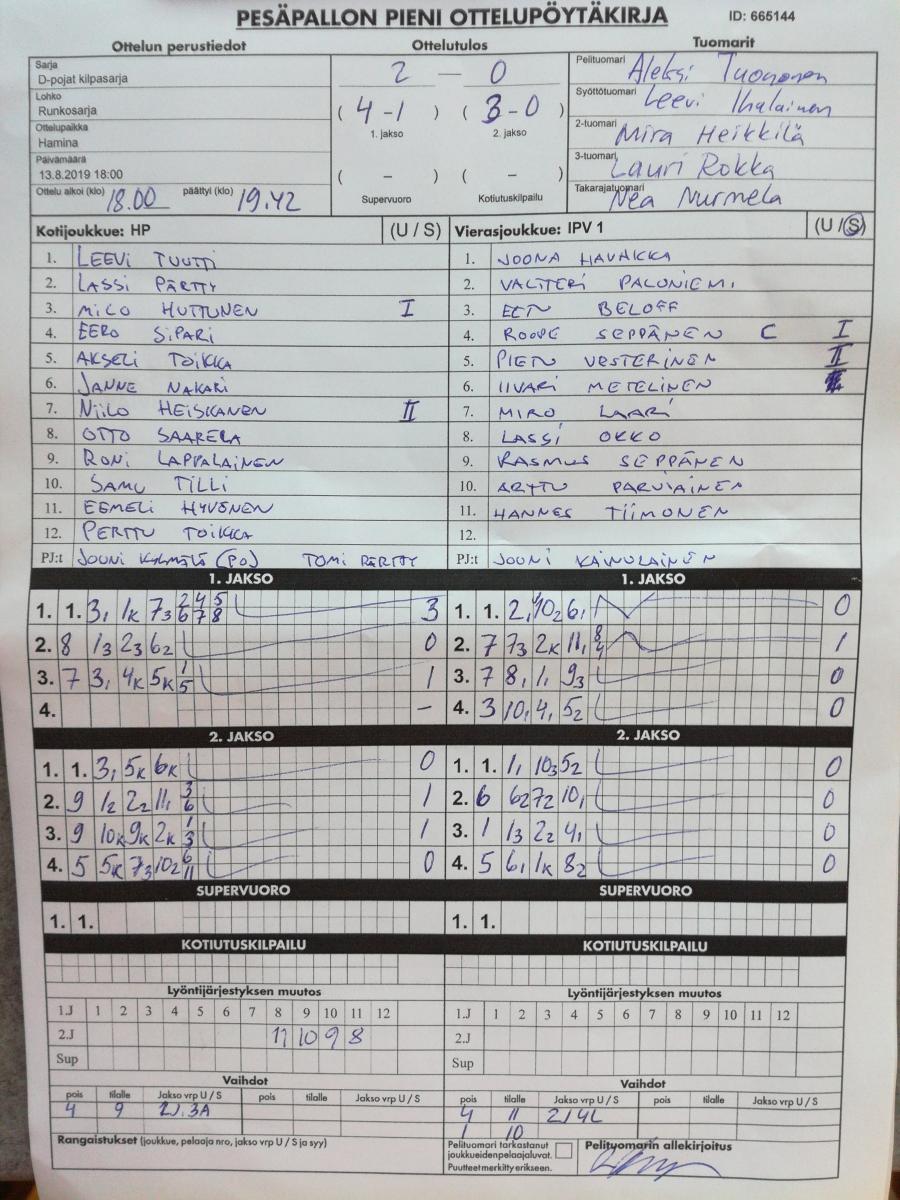 PESÄPALLON PIENI OTTELUPÖYTÄKIRJA ID: 665144
Ottelun perustiedot Ottelutulos Tuomarit
Sarja
D-pojat kilpasarja
Lohko
Runkosarja
Ottelupaikka
Hamina
Päivämäärä
13.8.2019 18:00
Ottelu alkoi (klo) 18.00 päättyi (klo) 19.42
2 — 0
( 4 - 1 ) ( 3 - 0 )
1. jakso 2. jakso
( – ) ( – )
Supervuoro Kotiutuskilpailu
Pelituomari Aleksi Tuononen
Syöttötuomari Leevi Ihalainen
2-tuomari Mira Heikkilä
3-tuomari Lauri Rokka
Takarajatuomari Nea Nurmela
Kotijoukkue: HP (U / S) Vierasjoukkue: IPV 1 (U / S)
1. LEEVI TUUTTI 1. JOONA HAVAKKA
2. LASSI PÄRTTY 2. VALTTERI PALONIEMI
3. MILO HUTTUNEN I 3. EETU BELOFF
4. EERO SIPARI 4. ROOPE SEPPÄNEN C I
5. AKSELI TOIKKA 5. PIETU VESTERINEN II
6. JANNE NAKARI 6. IIVARI METELINEN
7. NIILO HEISKANEN II 7. MIRO LAARI
8. OTTO SAARELA 8. LASSI OKKO
9. RONI LAPPALAINEN 9. RASMUS SEPPÄNEN
10. SAMU TILLI 10. ARTTU PARVIAINEN
11. EEMELI HYVÖNEN 11. HANNES TIIMONEN
12. PERTTU TOIKKA 12.
PJ:t JOUNI (PO) TOMI PÄRTTY PJ:t JOUNI KAINULAINEN
1. JAKSO 1. JAKSO
1. 1. 3, 1K 73 2 4 5 6 7 8 3 1. 1. 2, 102 6, 0
2. 8 13 23 62 0 2. 7 73 2K 11, 8 4 1
3. 7 3, 4K 5K 1 5 1 3. 7 8, 1, 93 0
4. – 4. 3 10, 4, 52 0
2. JAKSO 2. JAKSO
1. 1. 3, 5K 6K 0 1. 1. 1, 103 52 0
2. 9 12 22 11, 3 6 1 2. 6 62 72 10, 0
3. 9 10K 9K 2K 1 3 1 3. 1 13 22 4, 0
4. 5 5K 73 102 6 11 0 4. 5 6, 1K 82 0
SUPERVUORO SUPERVUORO
1. 1. 1. 1.
KOTIUTUSKILPAILU KOTIUTUSKILPAILU
Lyöntijärjestyksen muutos Lyöntijärjestyksen muutos
1.J 1 2 3 4 5 6 7 8 9 10 11 12 1.J 1 2 3 4 5 6 7 8 9 10 11 12
2.J 11 10 9 8 2.J
Sup Sup
Vaihdot Vaihdot
pois tilalle Jakso vrp U / S pois tilalle Jakso vrp U / S pois tilalle Jakso vrp U / S pois tilalle Jakso vrp U / S
4 9 2J.3A 4 11 2J4L
1 10
Rangaistukset (joukkue, pelaaja nro, jakso vrp U / S ja syy)
Pelituomari tarkastanut
joukkueiden pelaajaluvat.
Puutteet merkitty erikseen.
Pelityomarin allekirjoitus